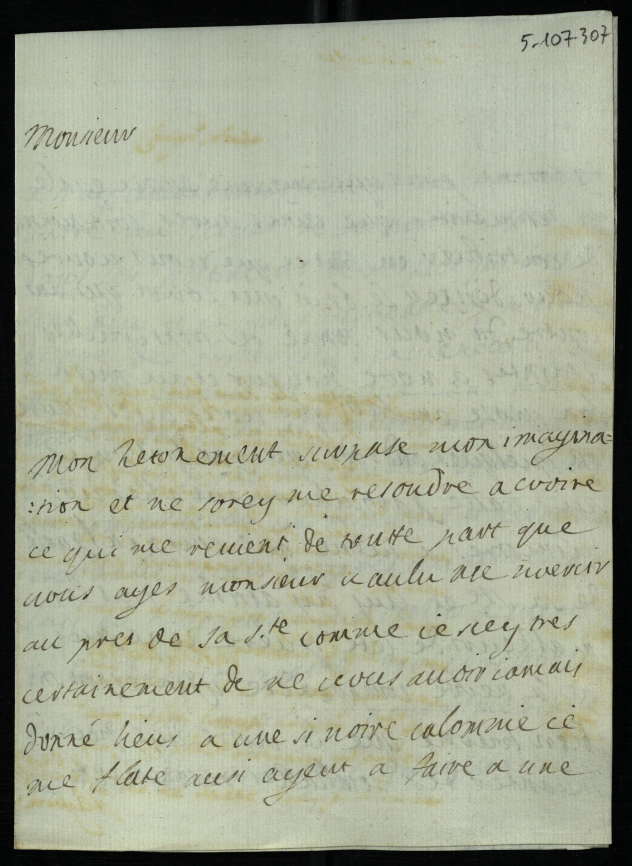 5-107-307
Monsieur
Mon hetonement surpase mon imagina=
:tion et ne sorey me resoudre a croire
ce qui me revient de toutte part que
vous ayes monsieur vaulu me noercir
au pres de sa s.te comme ie scey tres
certainement de ne vous avoir iamais
donné lieus a une si noire calomnie ie
me flate ausi ayent a faire a une